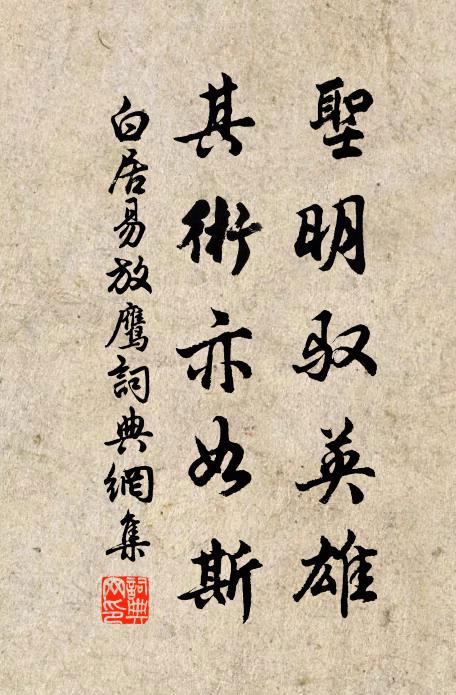 聖明驭英雄
其術亦如斯
白居易放鹰詞典網集
詞典网印